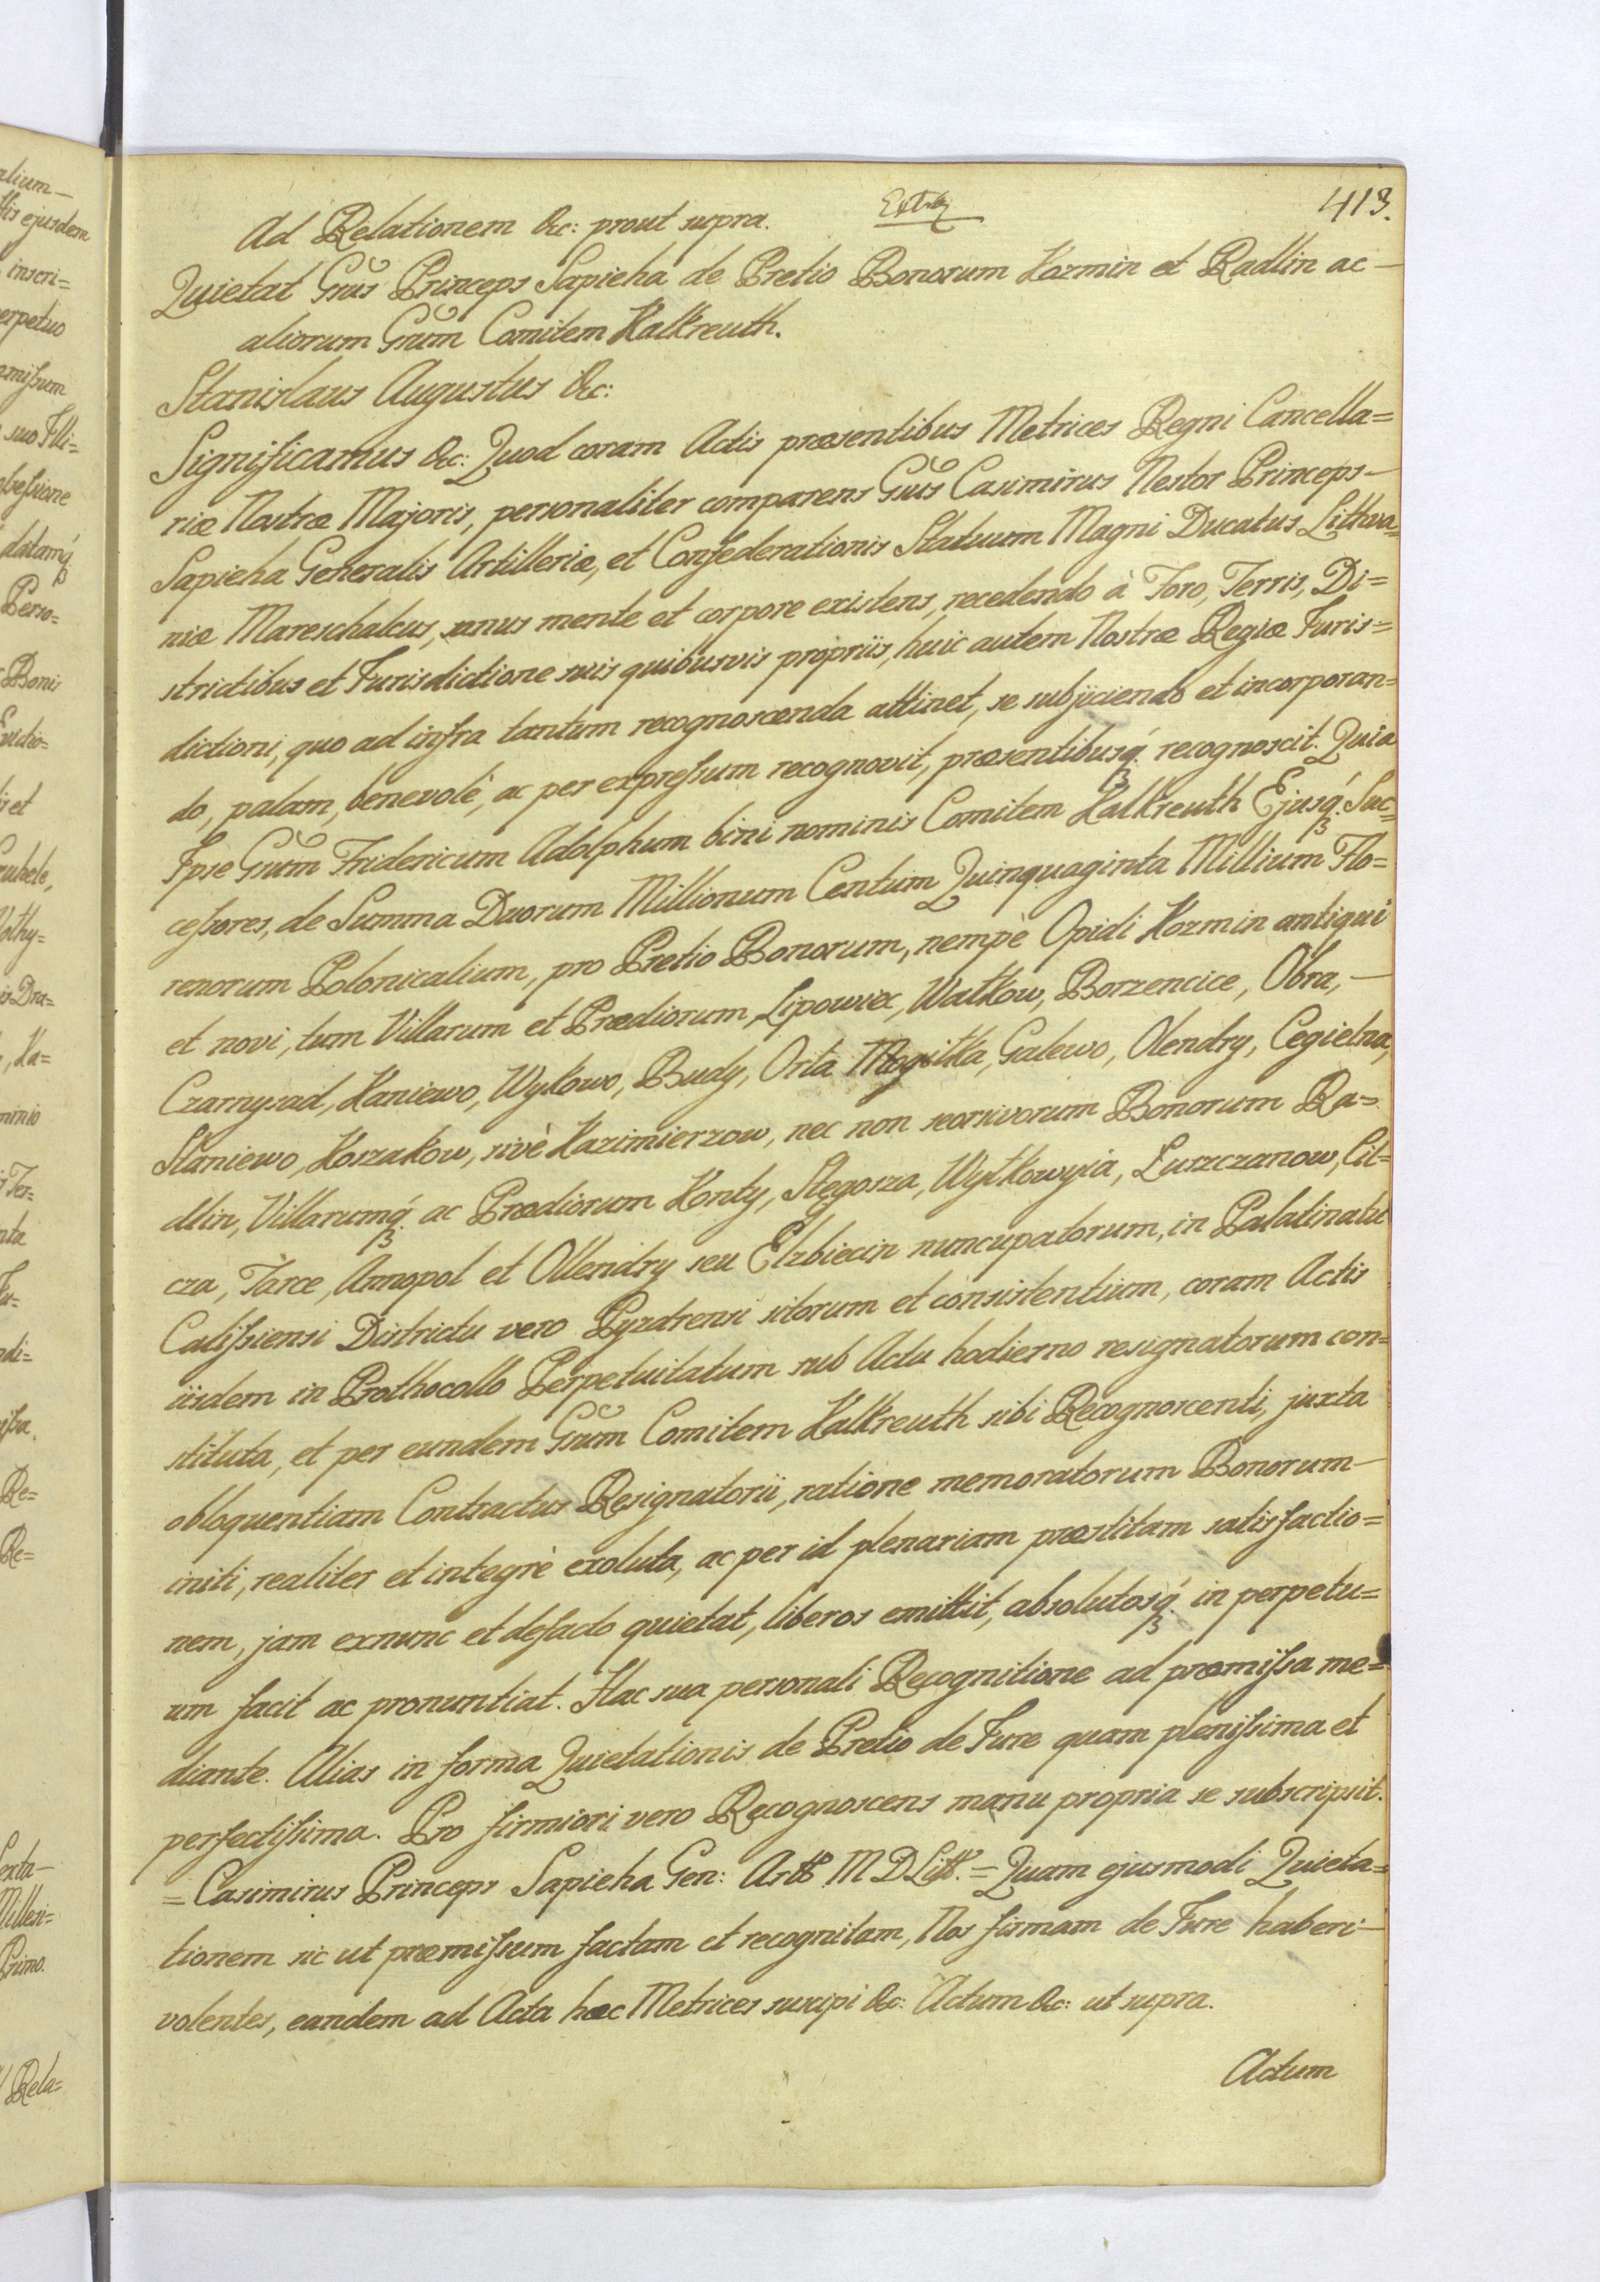 413.
Ad Relationem &c: prout supra.
Quietat Grus Princeps Sapieha de Pretio Bonorum Kozmin et Radlin ac
aliorum Grum Comitem Kalkreuth.
Stanislaus Augustus &c:
Significamus &c: Quod coram Actis præsentibus Metrices Regni Cancella=
riæ Nostræ Majoris, personaliter comparens Grus Casimirus Nestor Princeps
Sapieha Generalis Artilleriæ, et Confederationis Statuum Magni Ducatus Lithva=
niæ Mareschalcus, sanus mente et corpore existens, recedendo à Foro, Terris, Di=
strictibus et Jurisdictione suis quibusvis propriis, huic autem Nostræ Regiæ Juris=
dictioni, quo ad infra tantum recognoscenda attinet, se subjiciendo et incorporan=
do, palam, benevolè, ac per expressum recognovit, præsentibusq́. recognoscit. Quia
Ipse Grum Fridericum Adolphum bini nominis Comitem Kalkreuth Ejusq́. Suc=
cessores, de Summa Duorum Millionum Centum Quinquaginta Millium Flo=
renorum Polonicalium, pro Pretio Bonorum, nempè Opidi Kozmin antiqui
et novi, tum Villarum et Prædiorum Lipowiec, Watkow, Borzencice, Obra,
Czarnysad, Kaniewo, Wykowo, Budy, Orla Mogitka, Galewo, Olendry, Cegielna,
Staniewo, Koszakow, sivè Kazimierzow, nec non seorsivorum Bonorum Ra=
dlin, Villarumq́. ac Prædiorum Konty, Stęgosza, Wytkowyia, Luszczanow, Cil=
cza, Tarce, Annopol et Ollendry seu Elzbiecin nuncupatorum, in Palatinatu
Calissiensi Districtu vero Pyzdrensi sitorum et consistentium, coram Actis
iisdem in Prothocollo Perpetuitatum sub Actu hodierno resignatorum con=
stituta, et per eundem Grum Comitem Kalkreuth sibi Recognoscenti, juxta
obloquentiam Contractus Resignatorii, ratione memoratorum Bonorum
initi, realiter et integrè exoluta, ac per id plenariam præstitam satisfactio=
nem, jam exnunc et defacto quietat, liberos emittit, absolutosq́. in perpetu=
um facit ac pronuntiat. Hac sua personali Recognitione ad præmissa me=
diante. Alias in forma Quietationis de Pretio de Jure quam plenissima et
perfectissima. Pro firmiori vero Recognoscens manu propria se subscripsit.
= Casimirus Princeps Sapieha Gen: Artt M D Litt. = Quam ejusmodi Quieta=
tionem sic ut præmissum factam et recognitam, Nos firmam de Jure haberi
volentes, eandem ad Acta hæc Metrices suscipi &c: Actum &c: ut supra.
Actum